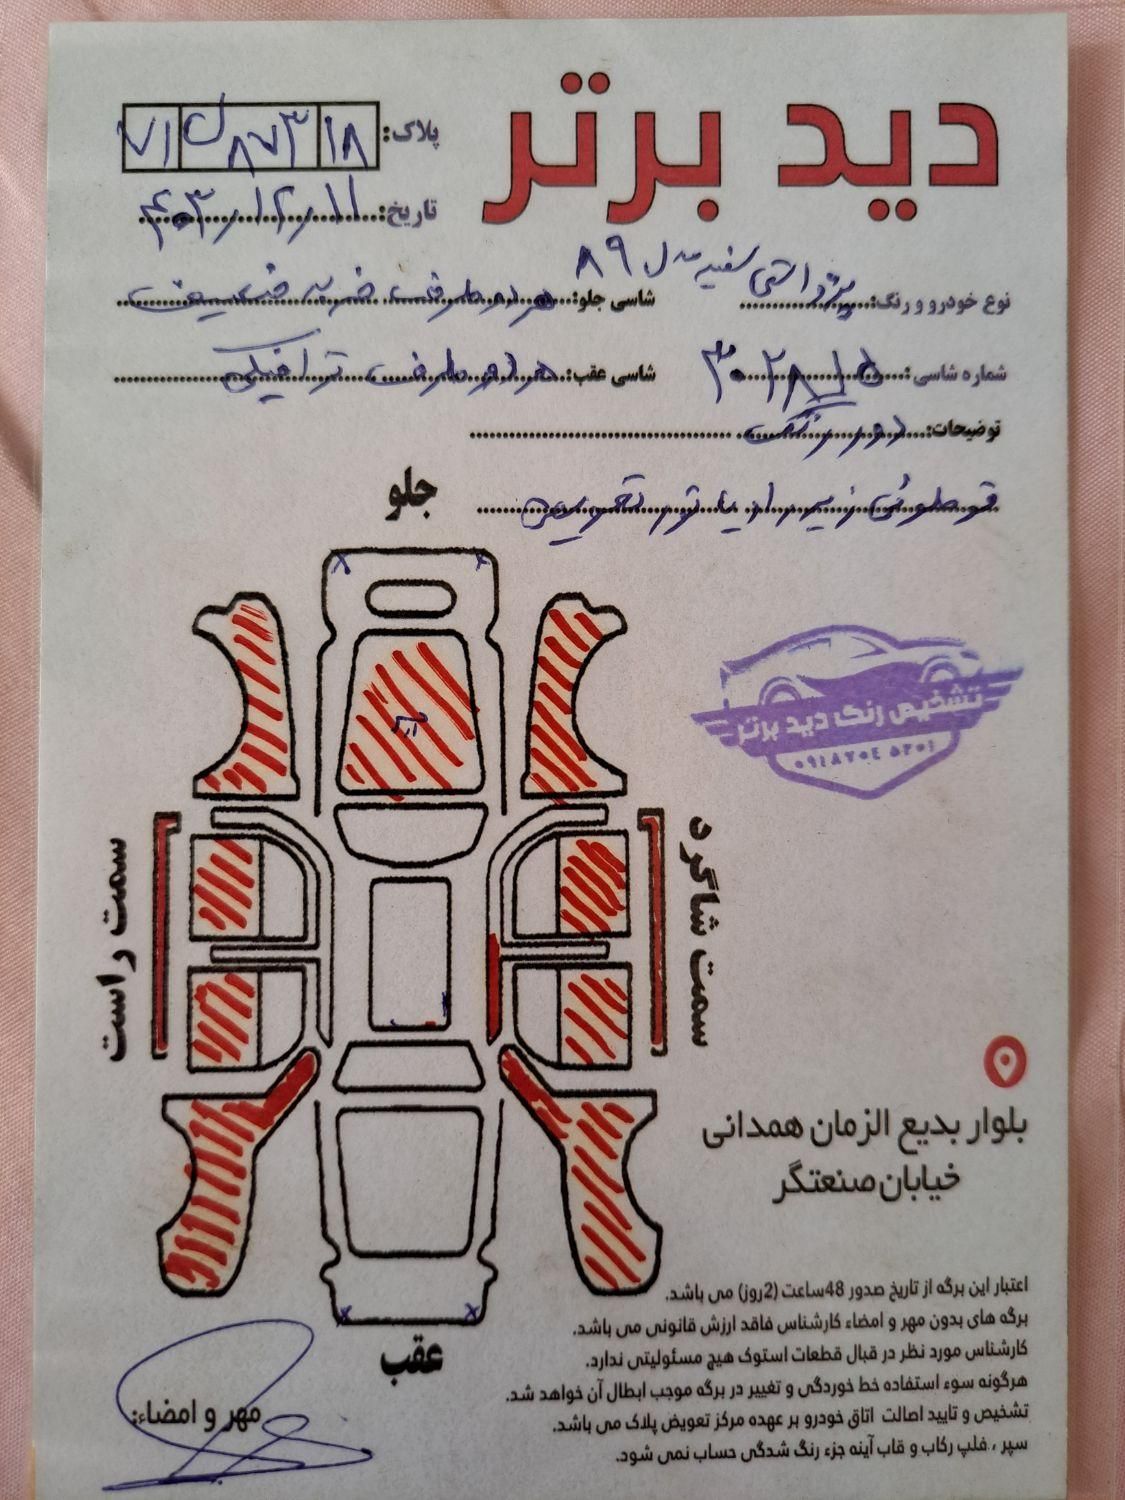 دید برتر
پلاک: ۱۸ ۸۷۳ ل ۷۱
تاریخ: ۴۰۳/۱۲/۱۱
نوع خودرو و رنگ: پژو سفید مدل ۸۹
شاسی جلو: هر دو طرف ضربه خفیف
شماره شاسی: ۳۰۲۸
شاسی عقب: هر دو طرف ترافیکی
توضیحات: دور رنگ
قوطوئی زیر رادیاتور تعویض
جلو
تشخیص رنگ دید برتر
۰۹۱۸۷۰۴۵۲۰۱
سمت راست
سمت شاگرد
بلوار بدیع الزمان همدانی
خیابان صنعتگر
اعتبار این برگه از تاریخ صدور 48ساعت (2روز) می باشد.
برگه های بدون مهر و امضاء کارشناس فاقد ارزش قانونی می باشد.
عقب
کارشناس مورد نظر در قبال قطعات استوک هیچ مسئولیتی ندارد.
هرگونه سوء استفاده خط خوردگی و تغییر در برگه موجب ابطال آن خواهد شد.
مهر و امضاء:
تشخیص و تایید اصالت اتاق خودرو بر عهده مرکز تعویض پلاک می باشد.
سپر ، فلپ رکاب و قاب آینه جزء رنگ شدگی حساب نمی شود.